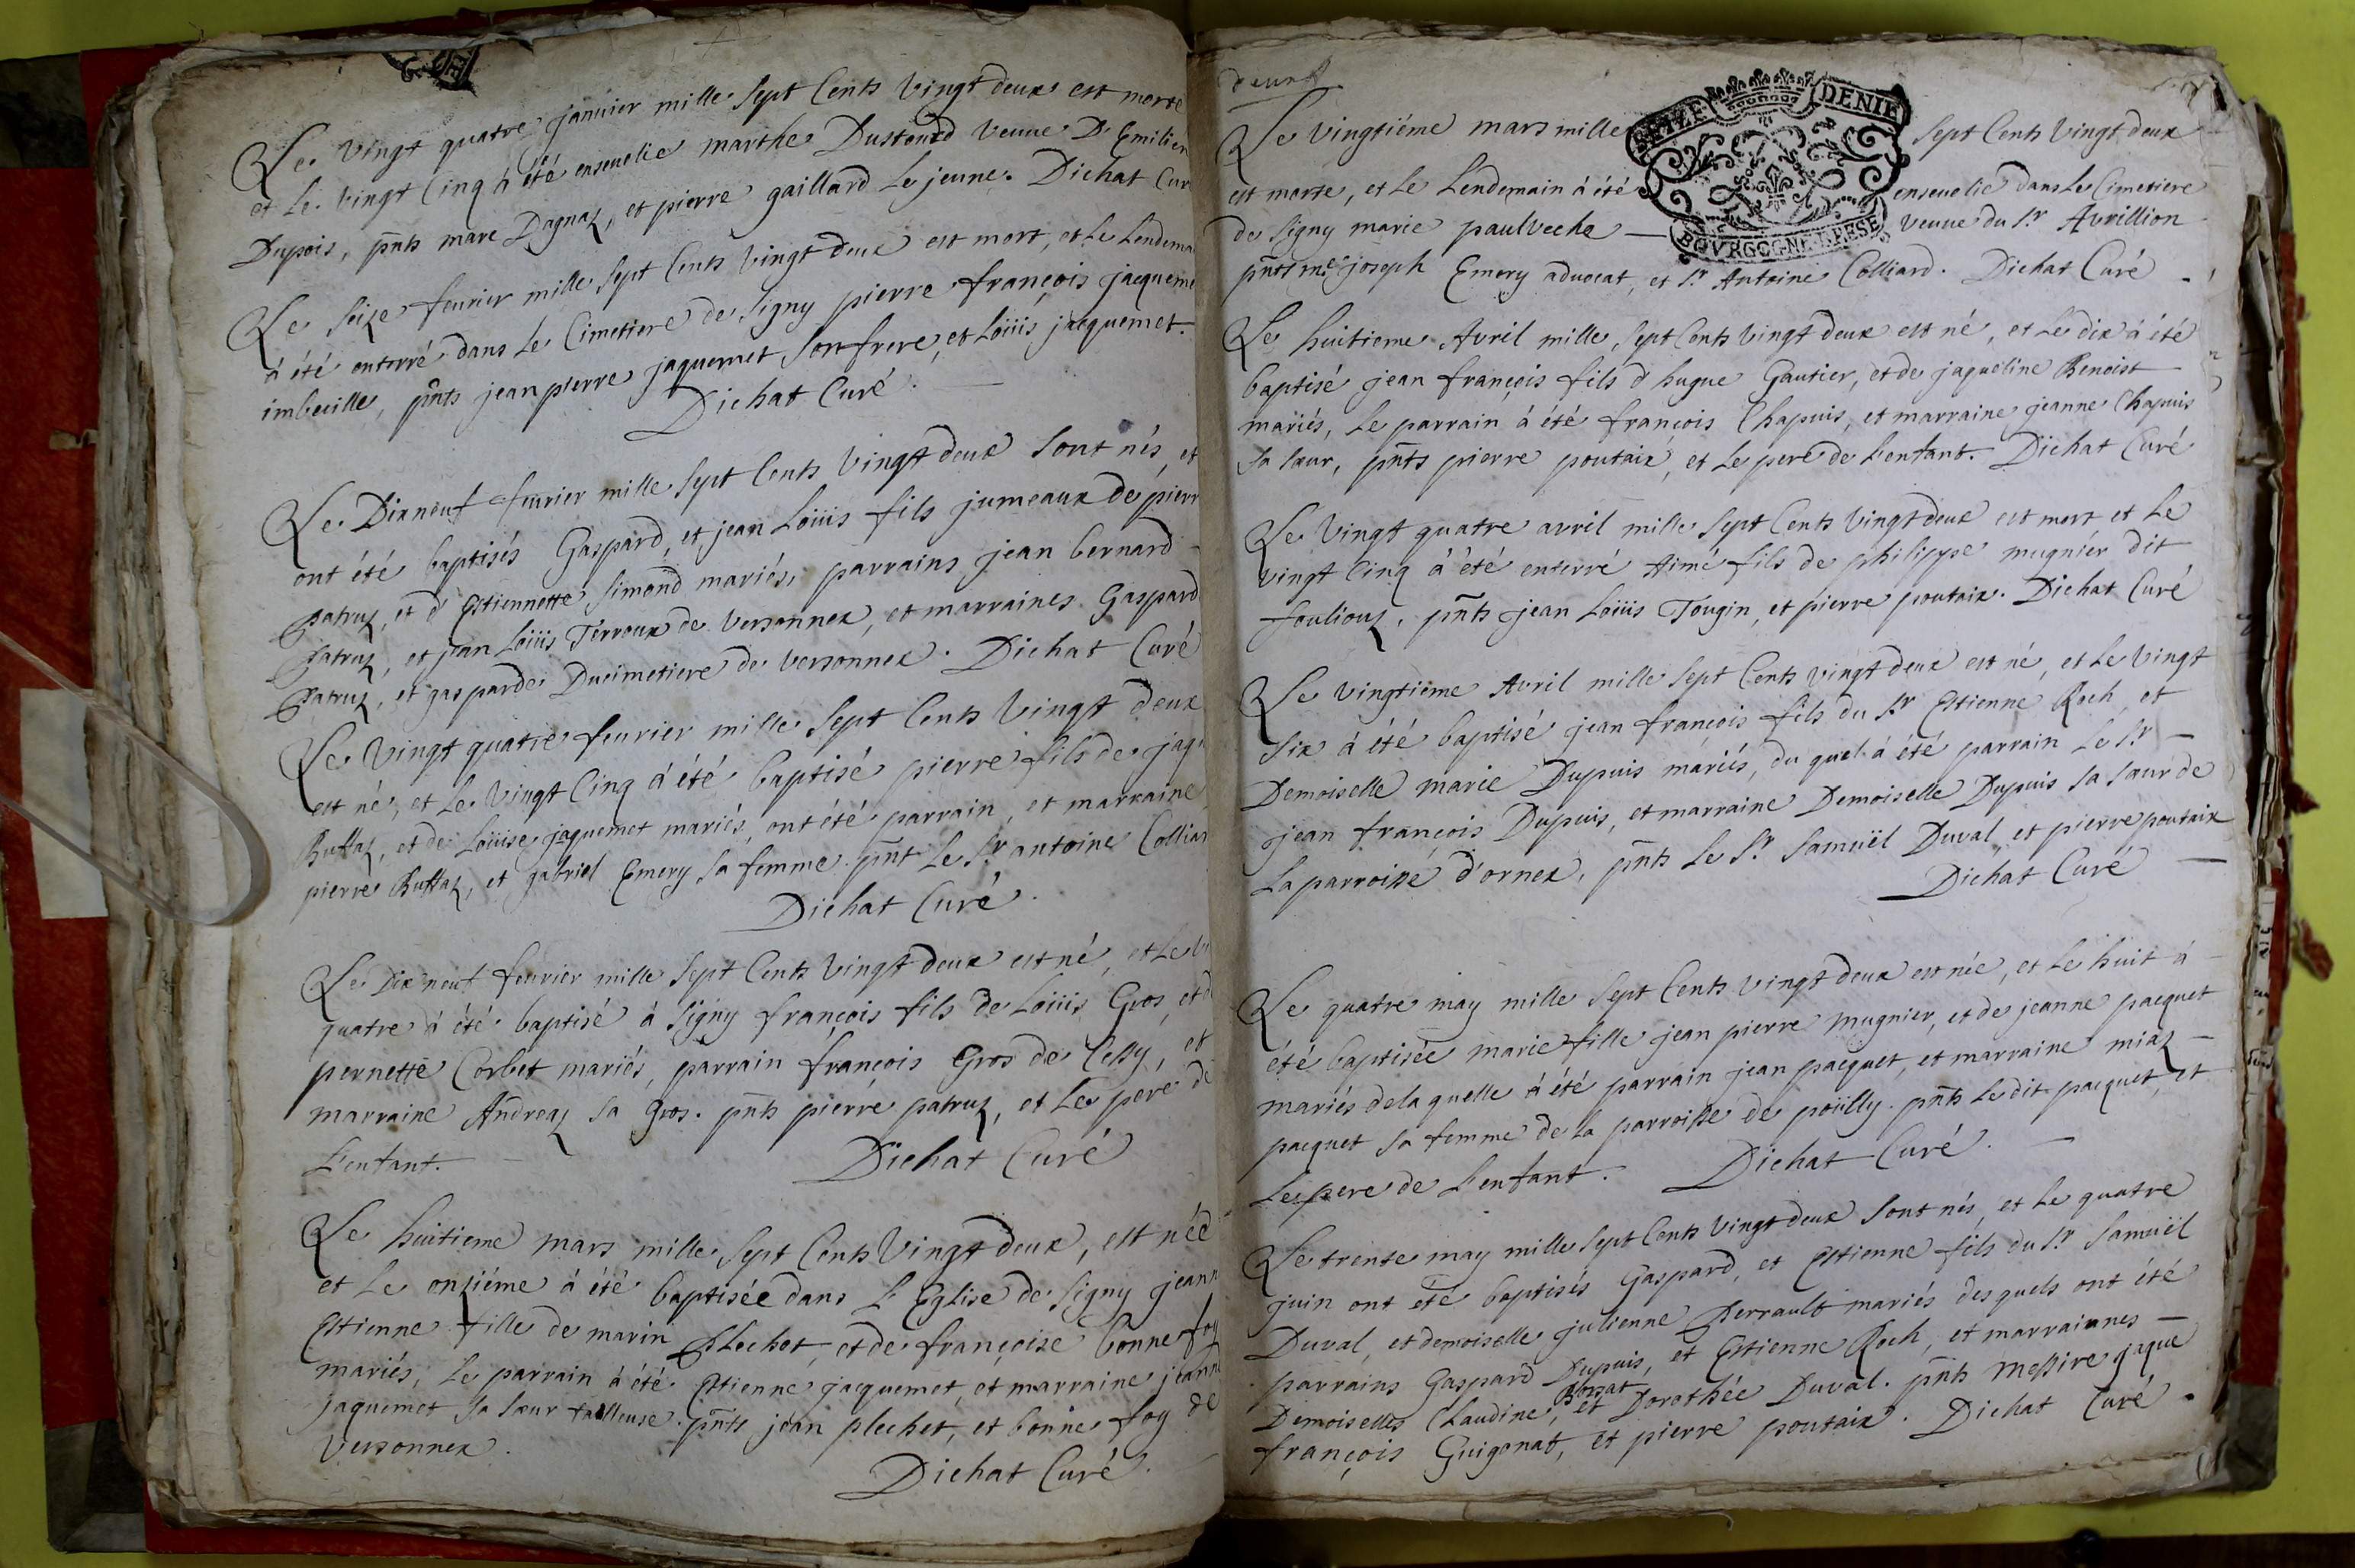 Le vingt quatre janvier mille sept Cents vingt deux est morte
et Le vingt Cinq à été enseuelie marthe Dustoud veuue D'Emilien
Dupois, pñts marc Dagnaz, et pierre gaillard Le jeune. Dichat Cur
Le seize feurier mille sept Cents vingt deux est mort, et Le Lendema
à été enterré dans Le Cimetiere de Signy pierre françois jacqueme
imbecille, pñts jean pierre jaquemet son frere, et Loüis jacquemet.
Dichat Curé.
Le Dixneuf feurier mille sept Cents vingt deux sont nés, et
ont été baptisés Gaspard, et jean Loüis fils jumeaux de pierr
patruz, et d'Estiennette Simond mariés, parrains jean bernard
patruz, et jean Loüis Terroux de Versonnex, et marraines Gaspard
patruz, et gasparde Ducimetiere de versonnex. Dichat Curé
Le Vingt quatre feurier mille sept Cents Vingt deux
est né, et Le Vingt Cinq à été baptisé pierre fils de jaqu
Ruffaz, et de Loüise jaquemet mariés, ont été parrain, et marraine
pierre Ruffaz, et gabriel Emery sa femme. pñt Le Sr antoine Colliar
Dichat Curé.
Le Dix neuf feurier mille sept Cents vingt deux est né, et Le vi
quatre à été baptisé à Signy françois fils de Loüis Gros, et d
pernette Corbet mariés, parrain françois Gros de Cessy, et
marraine Andreaz sa Gros. pñts pierre patruz, et Le pere de
L'enfant.
Dichat Curé
Le huitieme mars mille sept Cents Vingt deux, est née
et Le onziéme à été baptisée dans L'Eglise de Signy jeann
Estienne fille de marin Plechet, et de françoise bonne foy
mariés, Le parrain à été Estienne jacquemet, et marraine jeann
jaquemet sa sœur tailleuse. pñts jean plechet, et bonne foy de
Versonnex.
Dichat Curé.
deux
SEIZE DENIE
BOVRGOGNE BRESSE
Le vingtiéme mars mille sept Cents vingt deux
est morte, et Le Lendemain à été enseuelie dans Le Cimetiere
de Signy marie paulveche veuue du Sr Avrillion
pñts me joseph Emery aduocat, et Sr Antoine Colliard. Dichat Curé
Le huitieme Avril mille sept Cents vingt deux est né, et Le dix à été
baptisé jean françois fils d'hugue Gautier, et de jaqueline Benoist
mariés, Le parrain à été françois Chapuis, et marraine jeanne Chapuis
sa sœur, pñts pierre poutaix, et Le pere de L'enfant. Dichat Curé
Le Vingt quatre avril mille sept Cents vingt deux est mort et Le
vingt Cinq à été enterré Aimé fils de philippe mugnier dit
foulioux, pñts jean Loüis Tougin, et pierre poutaix. Dichat Curé
Le vingtieme Avril mille sept Cents vingt deux est né, et Le vingt
six à été baptisé jean françois fils du Sr Estienne Roch, et
Demoiselle marie Dupuis mariés, du quel à été parrain Le Sr
jean françois Dupuis, et marraine Demoiselle Dupuis sa sœur de
La parroisse d'ornex, pñts Le Sr Samuël Duval, et pierre poutaix
Dichat Curé
Le quatre may mille sept Cents vingt deux est née, et Le huit à
été baptisée marie fille jean pierre mugnier, et de jeanne pacquet
mariés de la quelle à été parrain jean pacquet, et marraine miaz
pacquet sa femme de La parroisse de poüilly. pñts Le dit pacquet, et
Le pere de L'enfant. Dichat Curé.
Le trente may mille sept Cents vingt deux sont nés, et Le quatre
juin ont été baptisés Gaspard, et Estienne fils du Sr Samuël
Duval, et demoiselle julienne Perrault mariés des quels ont été
parrains Gaspard Dupuis, et Estienne Roch, et marraines
Demoiselles Claudine Bossat, et Dorothée Duval. pñts Messire jaque
françois Guigonat, et pierre poutaix. Dichat Curé.